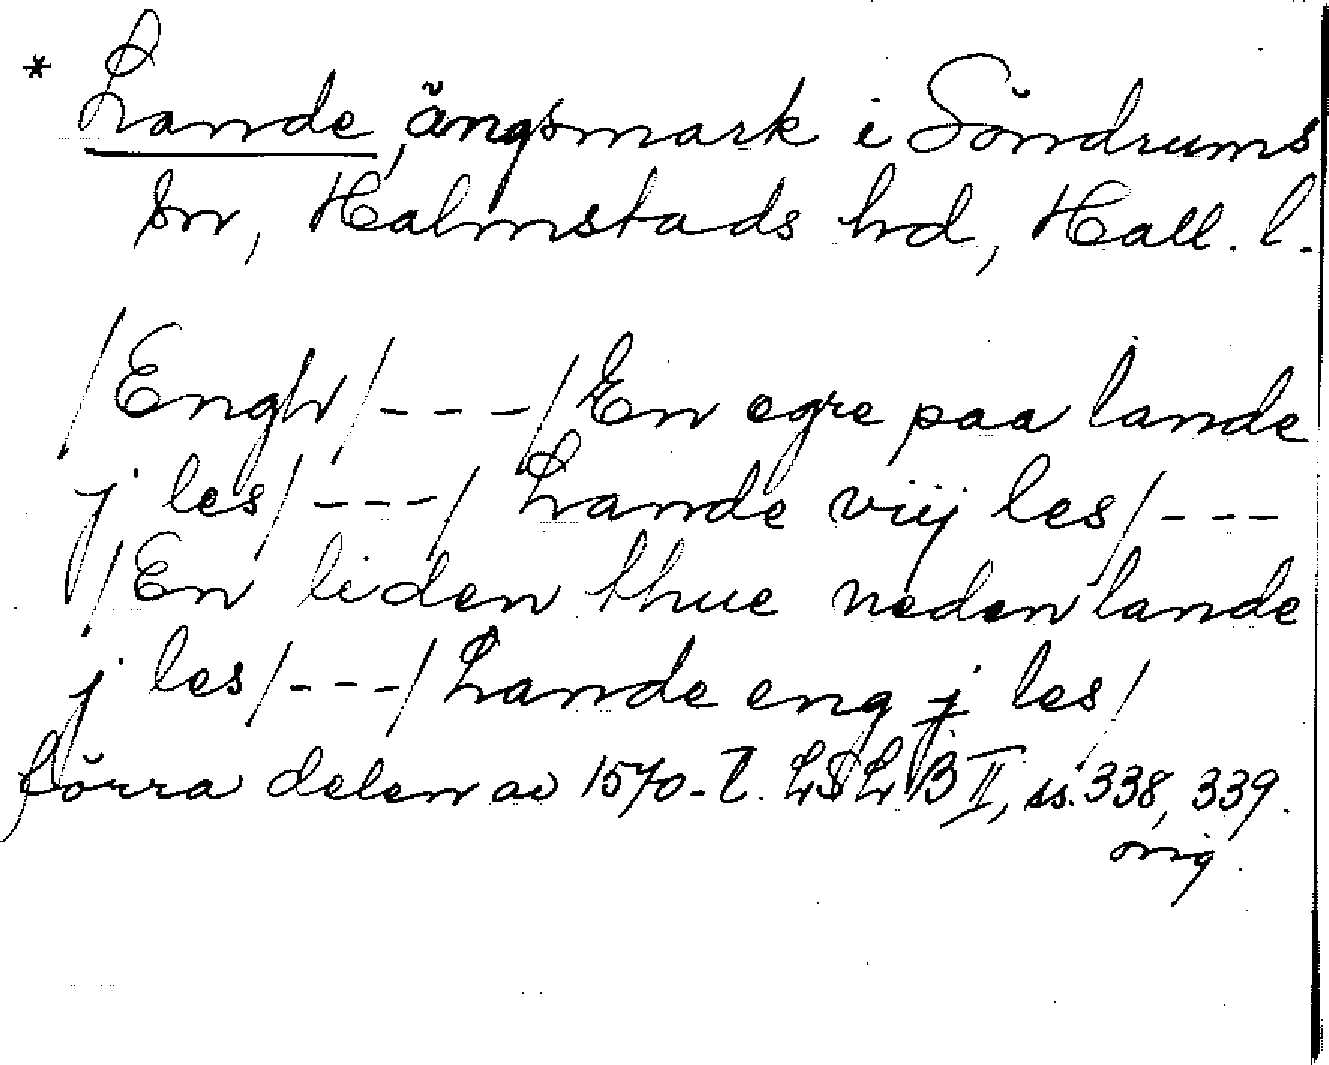 * Lande, ängsmark i Söndrums
sn, Halmstads hd, Hall. l.
/Engh/---/En egre paa lande
j les/---/Lande viij les/---
/En liden thue neden lande
j les/---/Lande eng j les/
förra delen av 1570-t. LSLB II, ss. 338, 339.
orig.